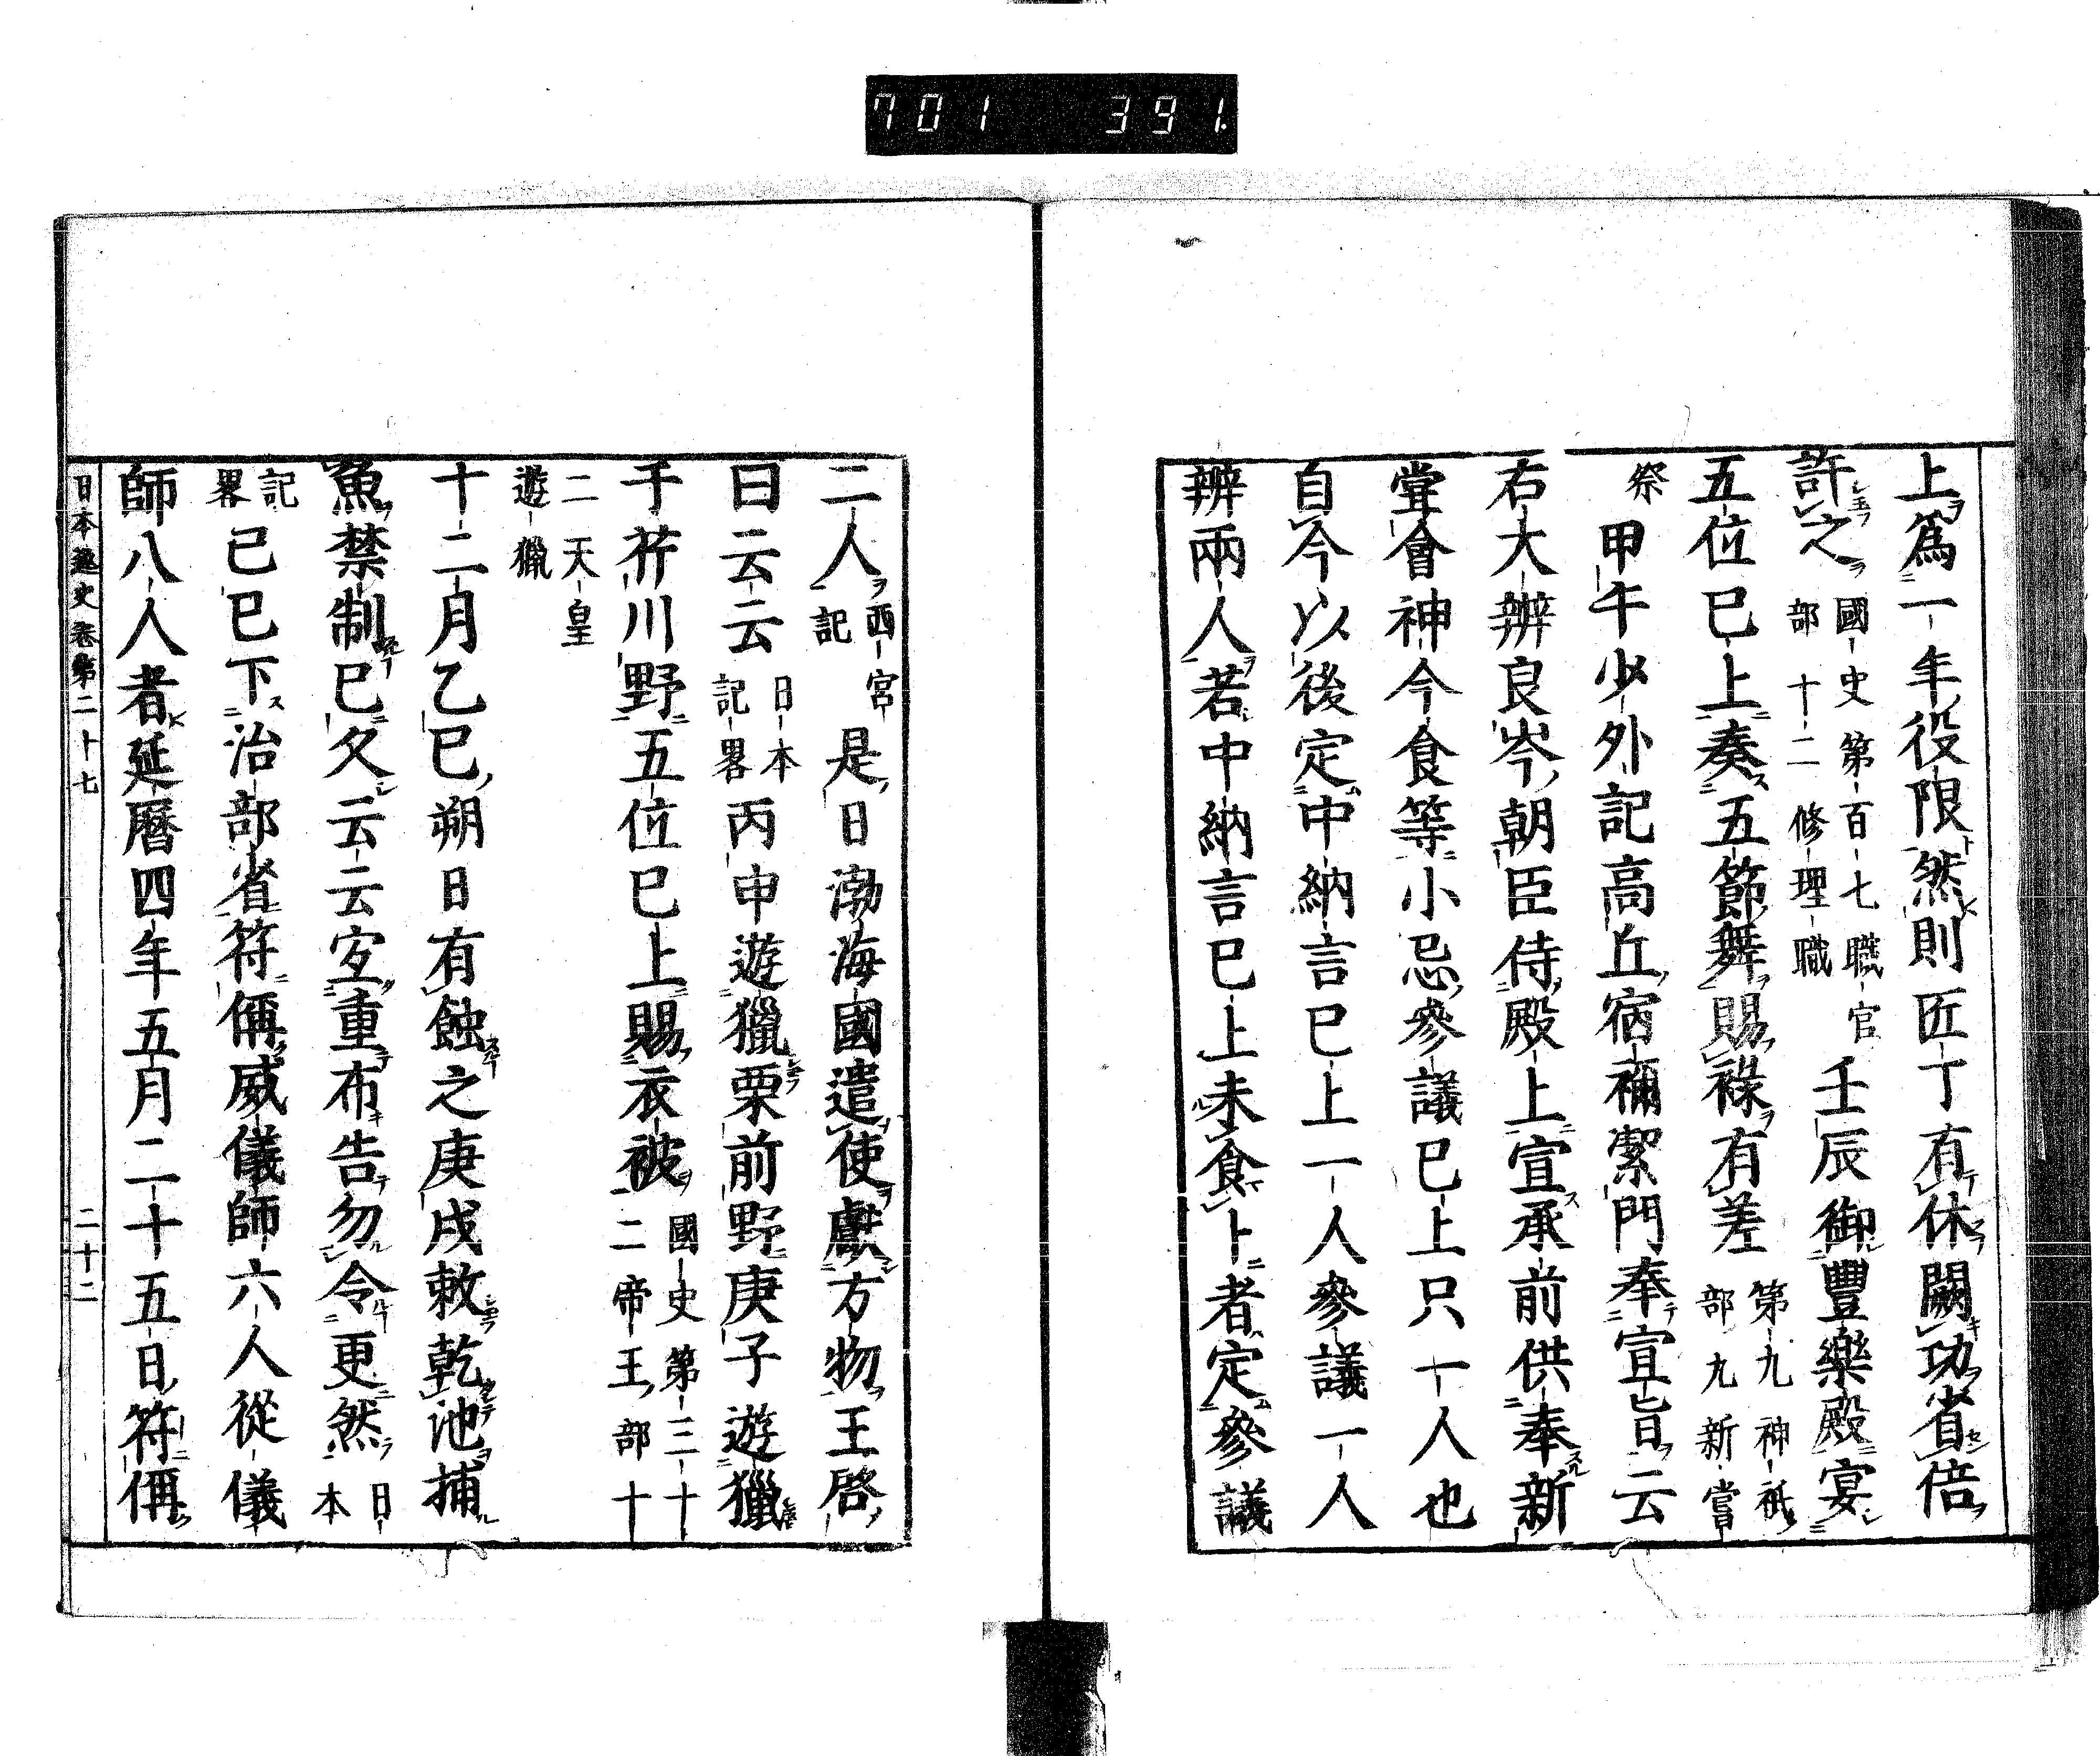 701 391.
上爲一年役限然則匠丁有休闕功省倍
許之國史第百七職官部十二修理職壬辰御豐樂殿宴
五位已上奏五節舞賜祿有差第九神祇部九新嘗
祭甲午少外記高丘宿禰潔門奉宣旨云
右大辨良岑朝臣侍殿上宣承前供奉新
甞會神今食等小忌參議已上只一人也
自今以後定中納言已上一人參議一人
辨兩人若中納言已上未食卜者定參議
二人西宮記是日渤海國遣使獻方物王啓
曰云云日本記畧丙申遊獵栗前野庚子遊獵
于芹川野五位已上賜衣被國史第三十二帝王部十
二天皇遊獵
十二月乙巳朔日有蝕之庚戌敕乾池捕
魚禁制已久云云宜重布告勿令更然日本
記畧己巳下治部省符偁威儀師六人從儀
師八人者延曆四年五月二十五日符偁
日本逸史卷第二十七 二十二